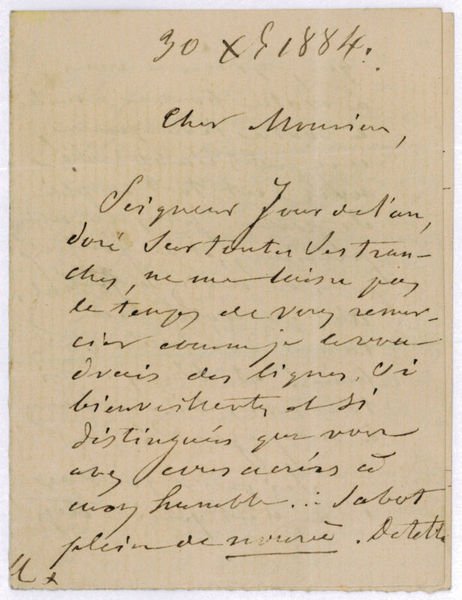 30 Xᵉ 1884.
Cher Monsieur,
Seigneur Jour de l'an,
doré sur toutes ses tran-
ches, ne me laisse pas
le temps de vous remer-
cier comme je le vou-
drais des lignes, si
bienveillantes et si
distinguées que vous
avez consacrées à
mon humble... Sabot
plein de